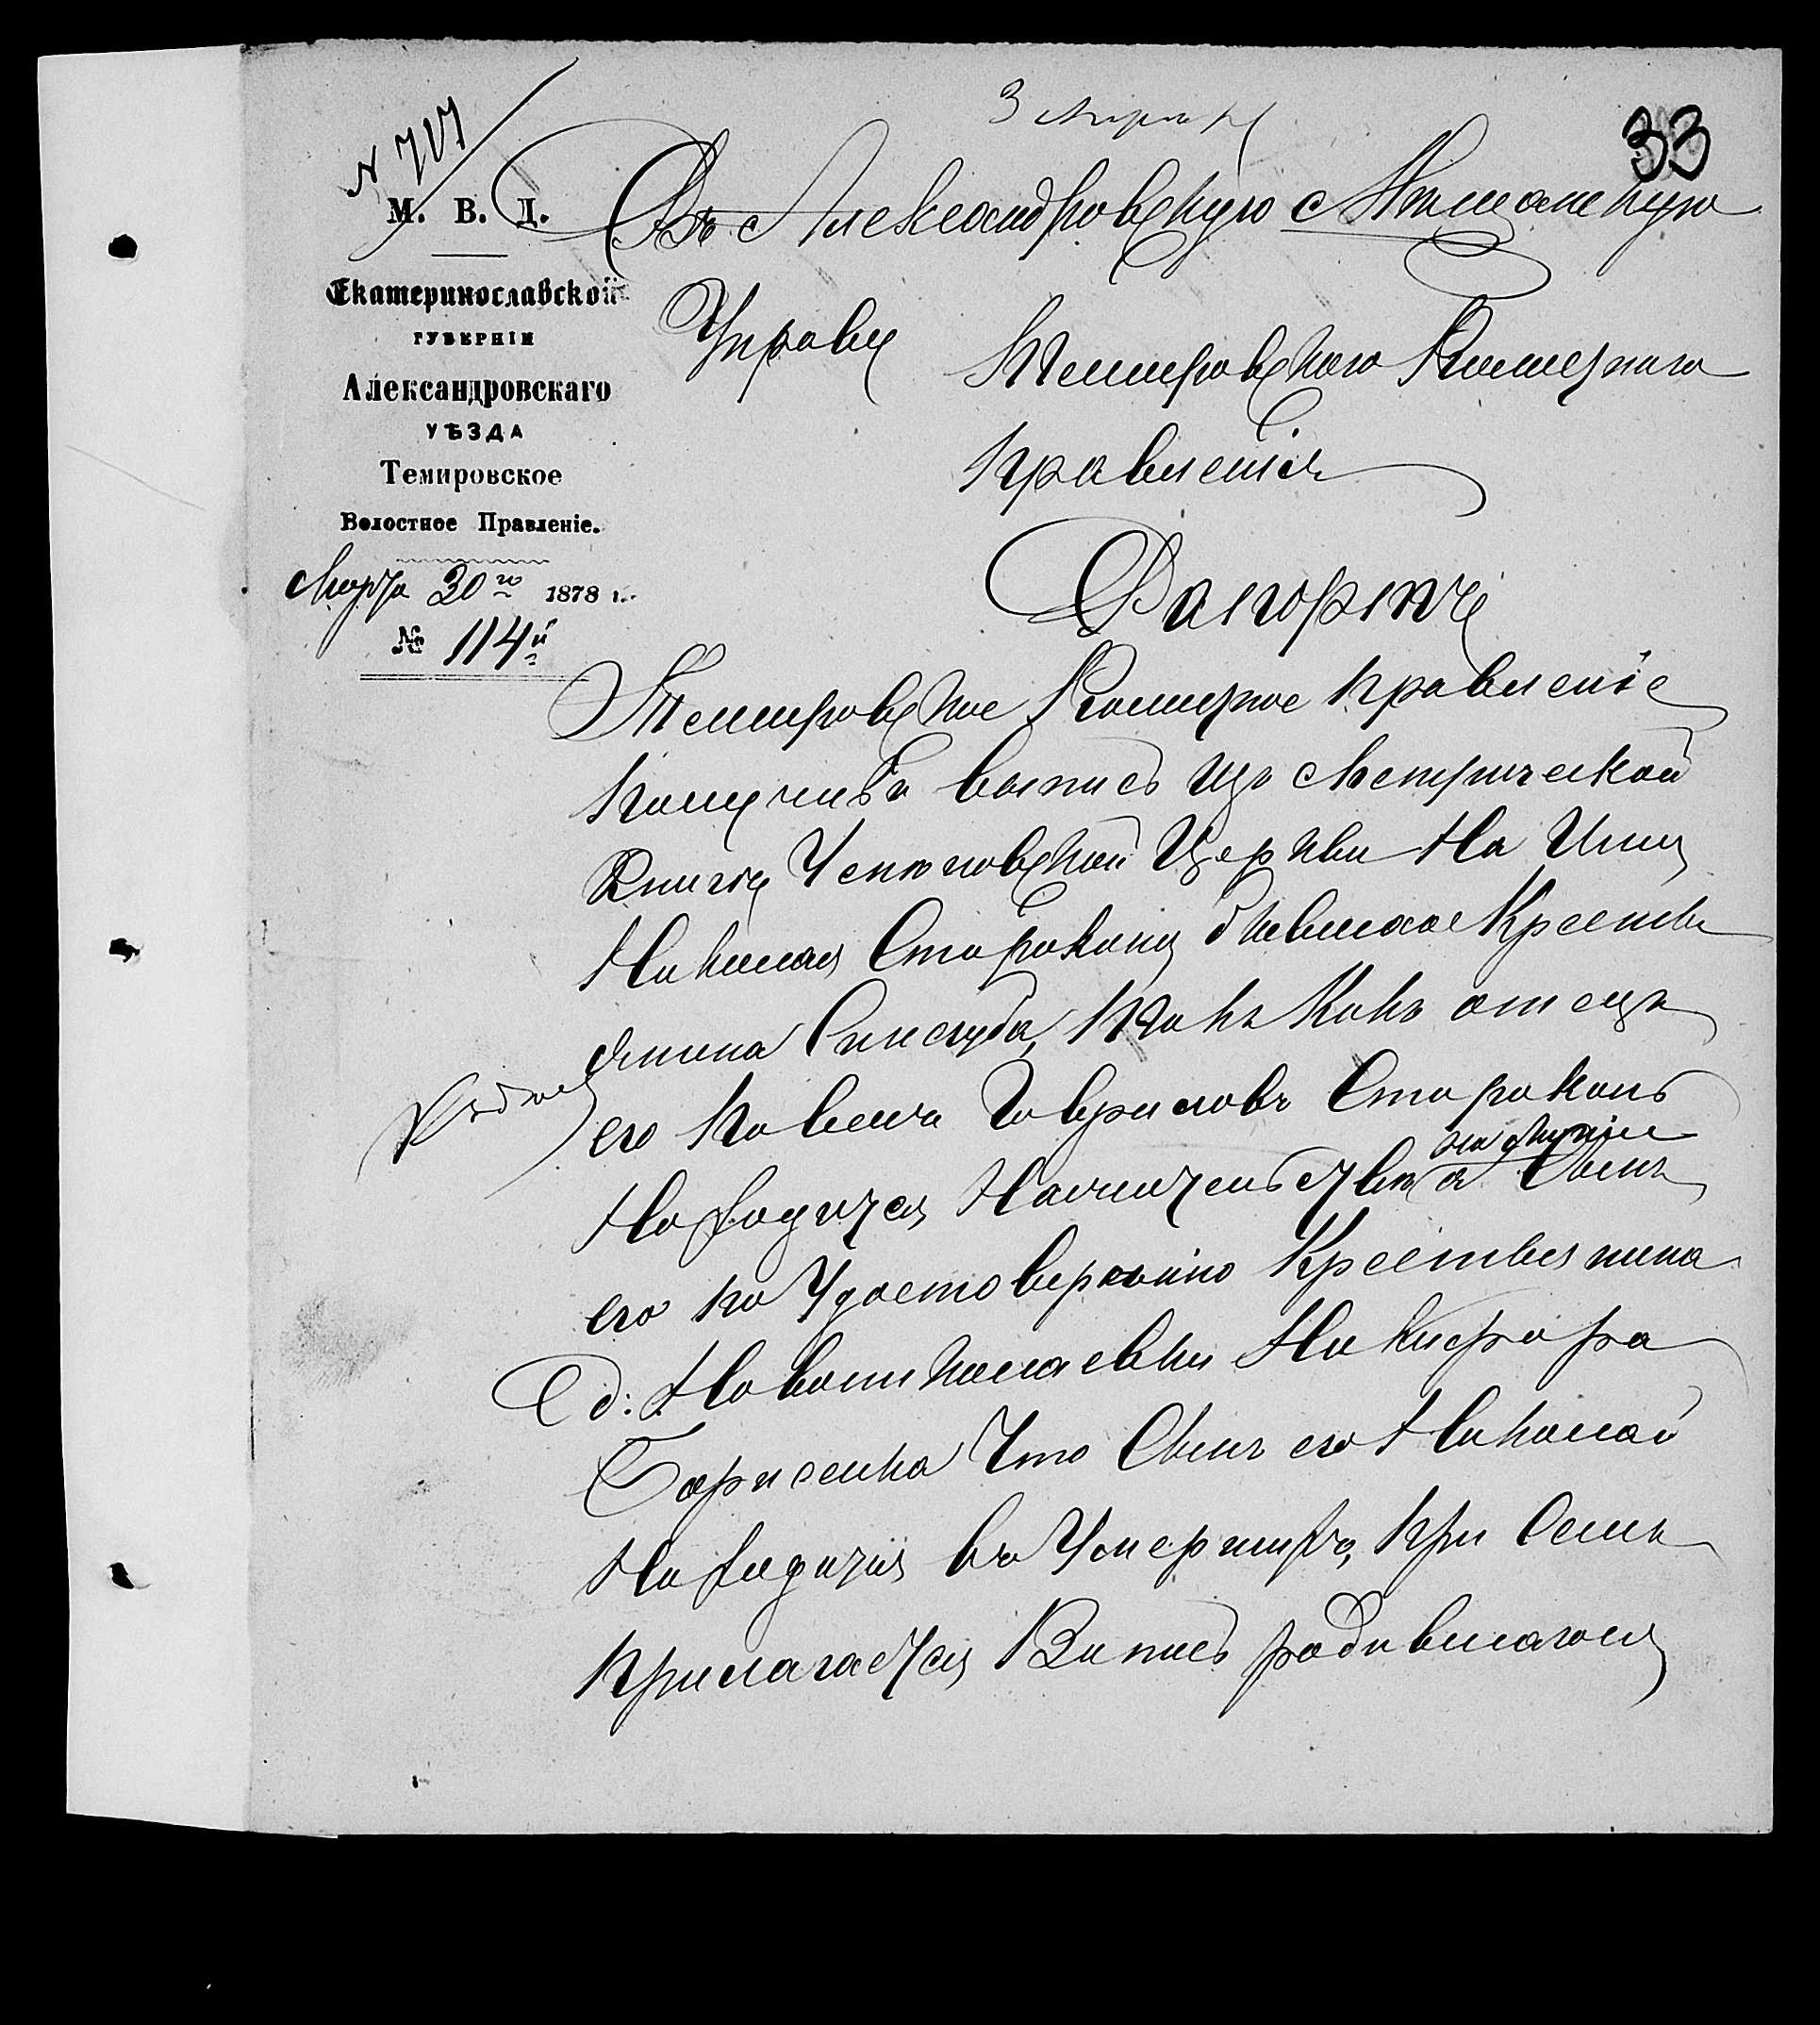 33
№ 707
М. В. Д.
Екатеринославской
ГУБЕРНІИ
Александровскаго
УѢЗДА
Темировское
Волостное Правленіе.
Марта 30го 1878 г.
№ 114й
Въ Александровскую Мѣщанскую
Управу
Темировского
правленія
Рапортъ
Темировское правленіе
Получивъ выпись изъ Метрической
Книги Церкви На Имя
Николая Сторокона бывшаго Крестья
янина так Какъ отецъ
его Павелъ Гавриловъ Стороконь
Находится на службѣ а Сынъ
его по Удостоверению Крестьянина
Д: Новониколаевки Никифора
Борисенка Что Сынъ его Николай
Находится въ Умершихъ, при Семъ
прилагается Випись родившагося